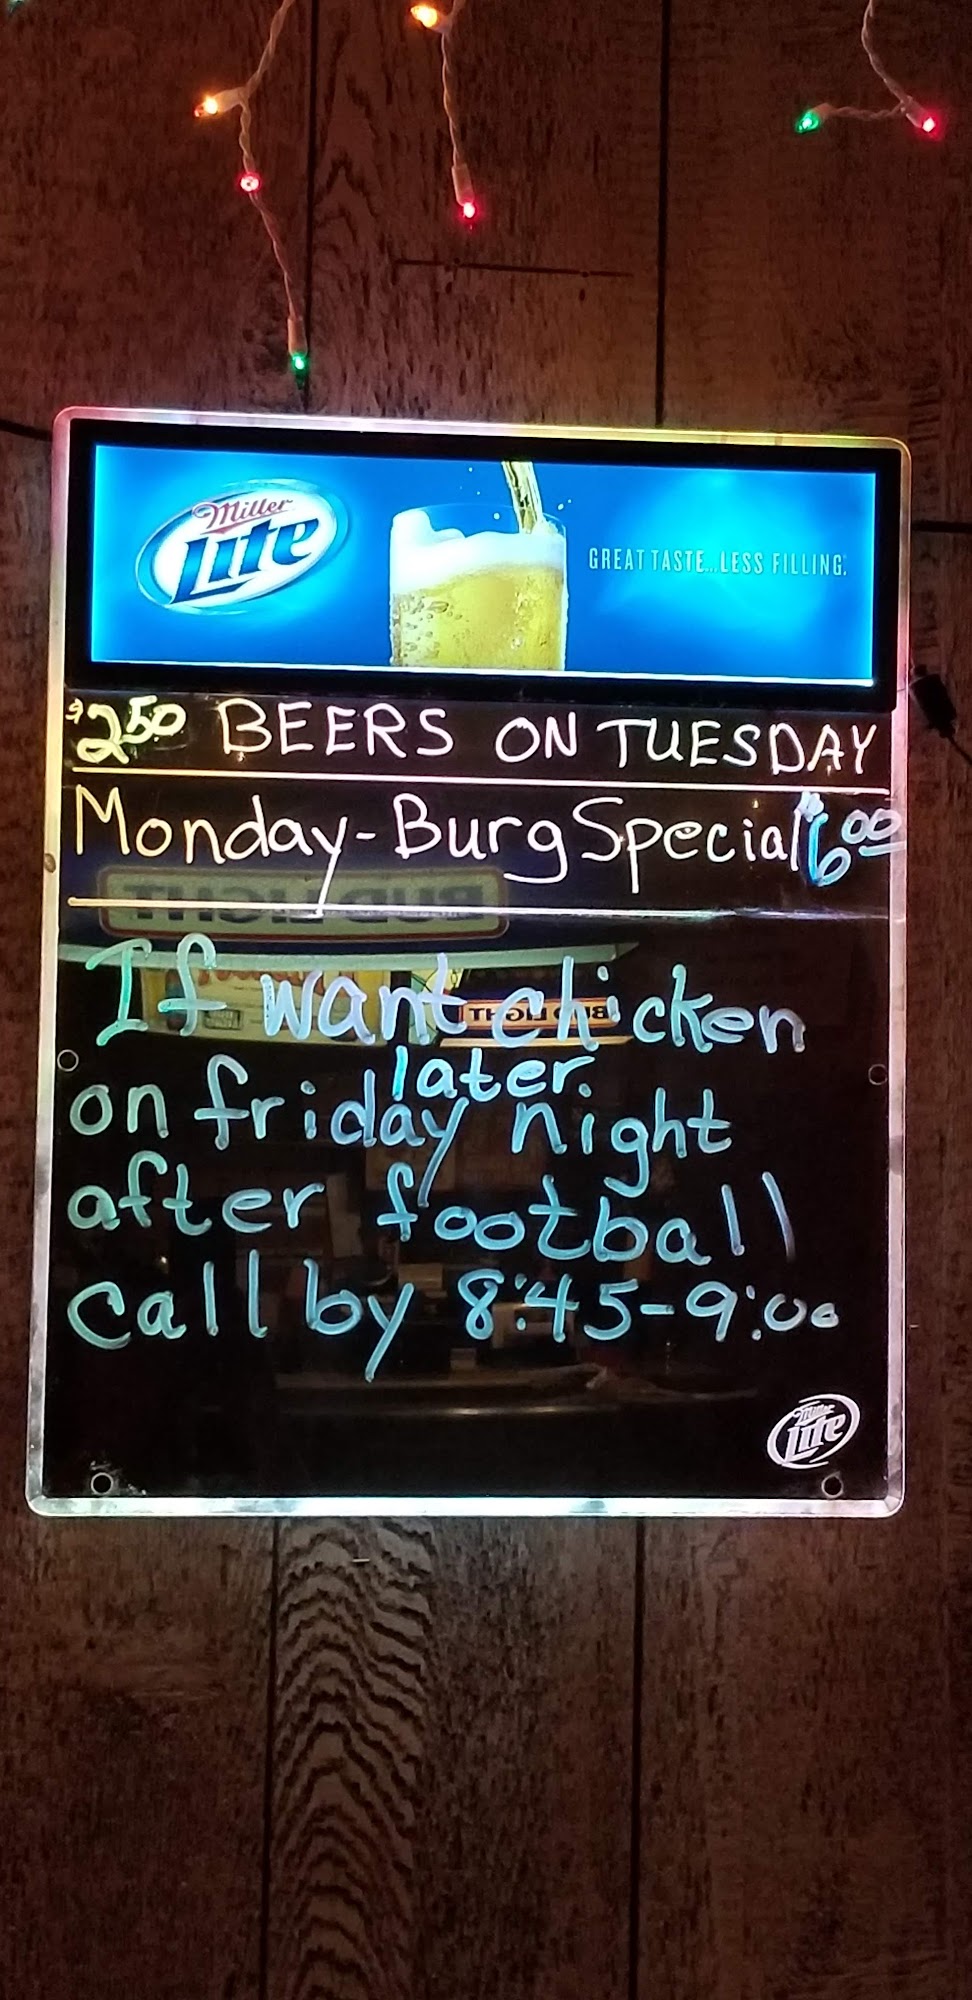 Miller
Lite
GREAT TASTE...LESS FILLING.
$2.50 BEERS ON TUESDAY
Monday-Burg Special $6.00
BUD LIGHT
BUD LIGHT
If want chicken
later.
on friday night
after football
call by 8:45-9:00
Miller
Lite